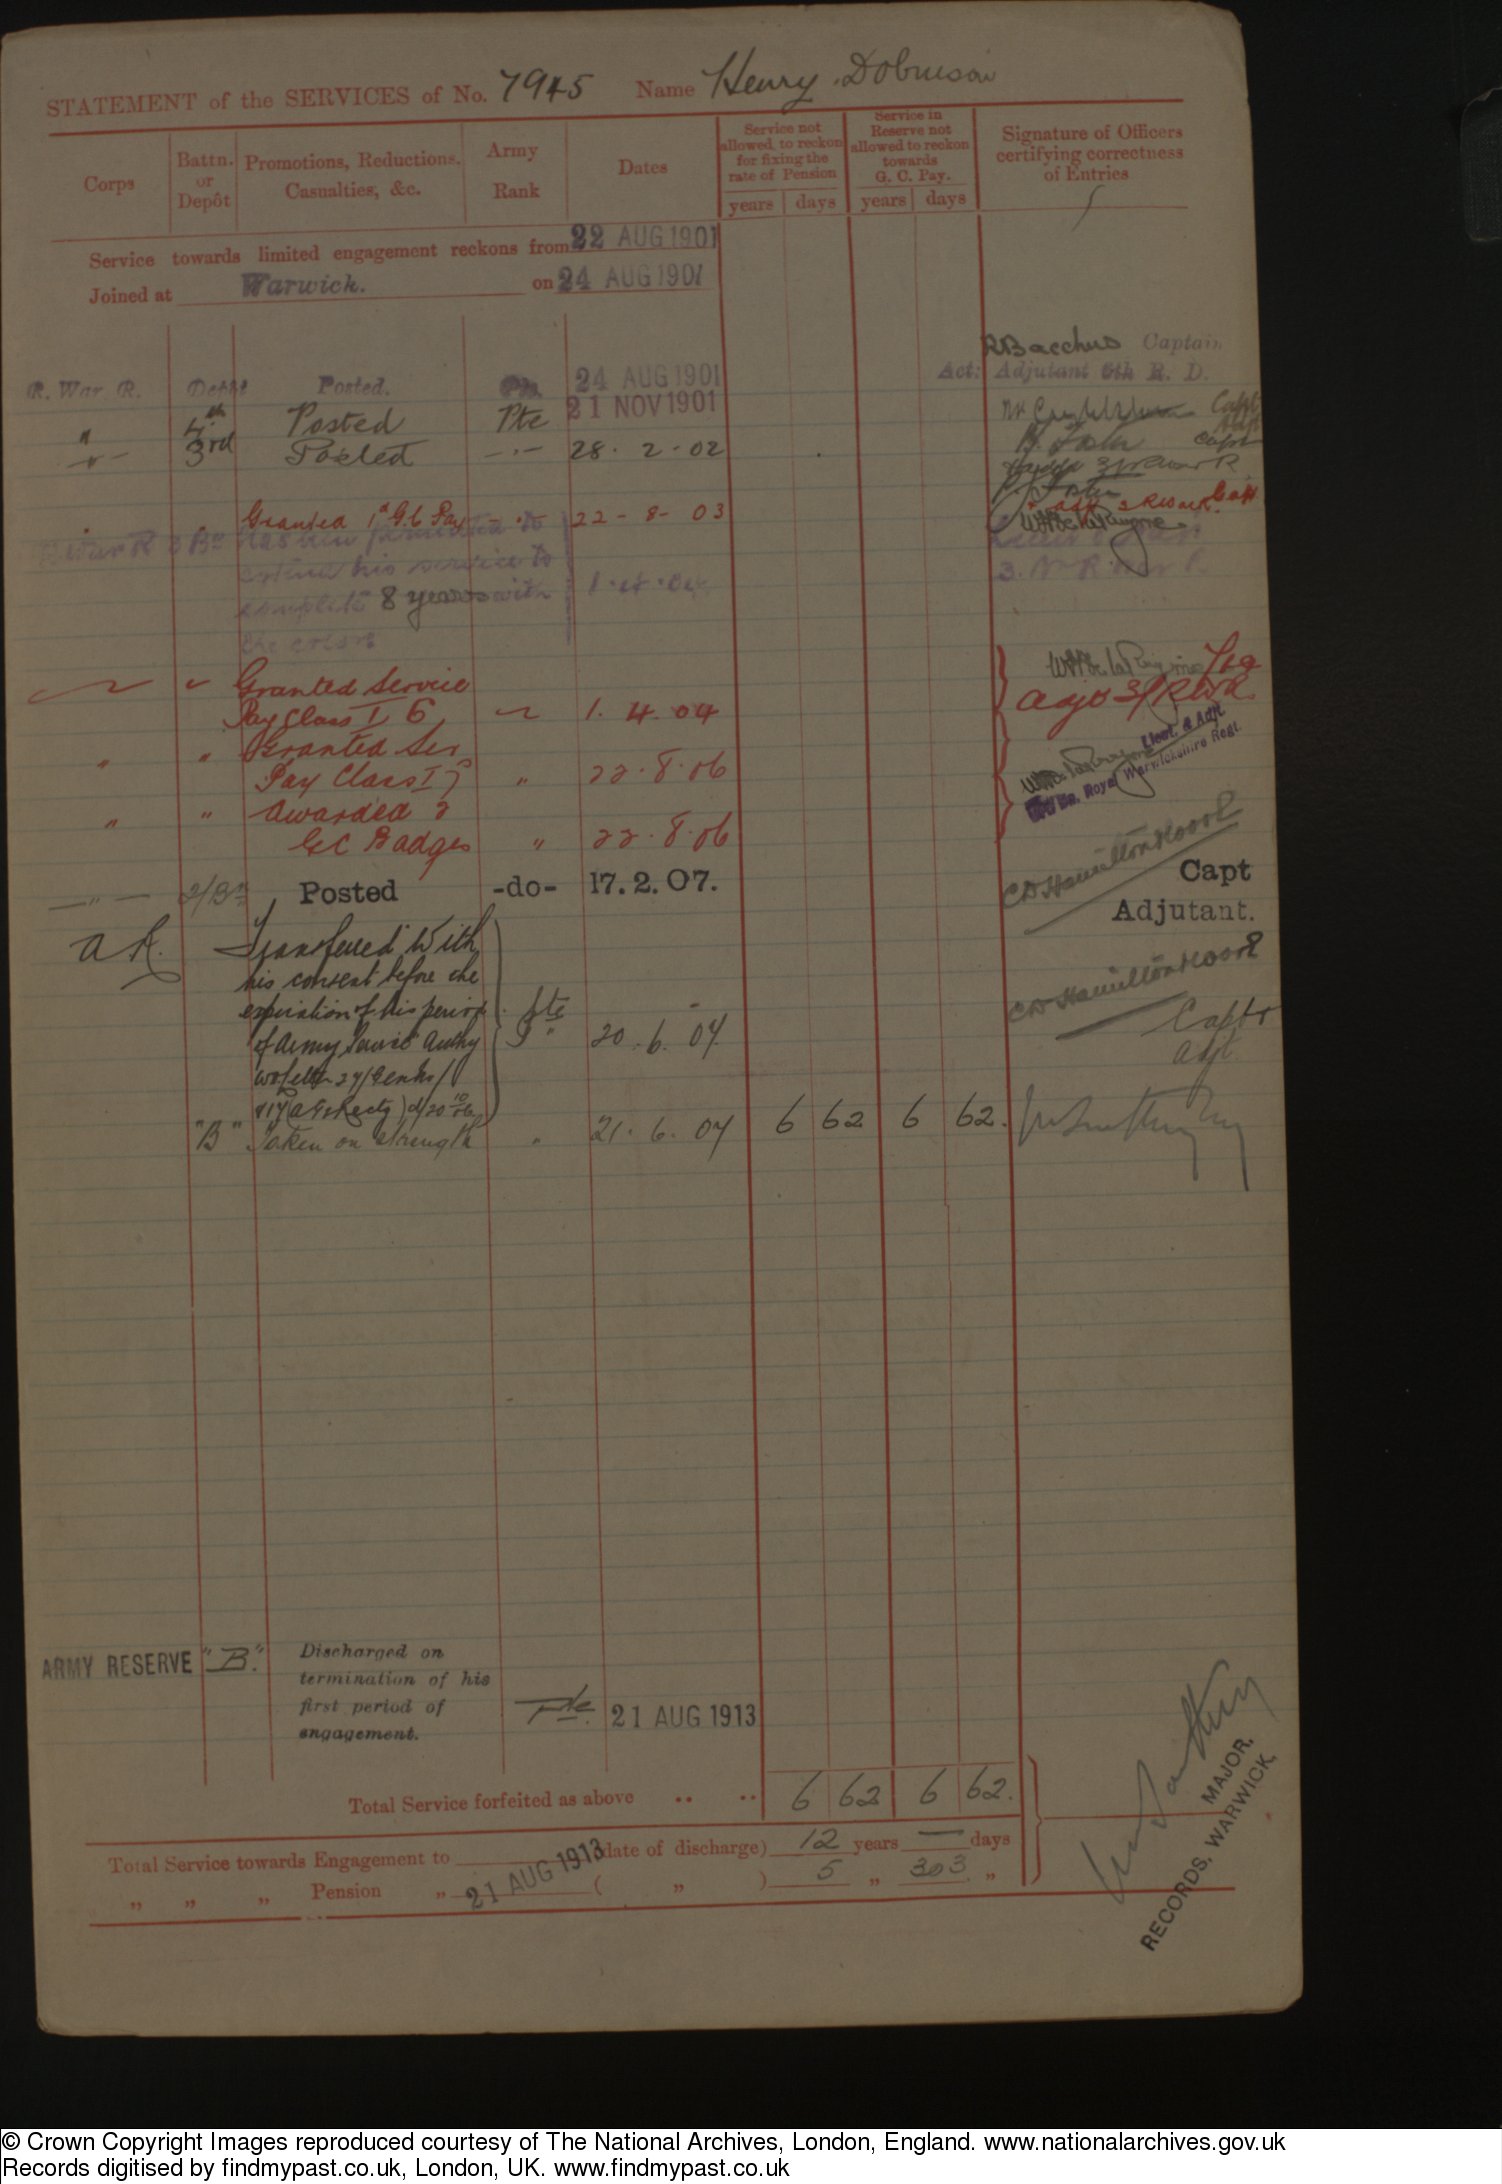 STATEMENT of the SERVICES of No. 7945 Name Henry Dobinson
Corps
Battn. or Depôt
Promotions, Reductions, Casualties, &c.
Army Rank
Dates
Service not allowed to reckon for fixing the rate of Pension
years days
Service in Reserve not allowed to reckon towards G. C. Pay.
years days
Signature of Officers certifying correctness of Entries
Service towards limited engagement reckons from 22 AUG 1901
Joined at Warwick. on 24 AUG 1901
RBacchus Captain
R. War. R. Depôt Posted. Pte. 24 AUG 1901 Act: Adjutant 6th R. D.
" 4th Posted Pte 21 NOV 1901 Capt
" 3rd Posted " 28. 2. 02 Capt
Granted 1st G.C Pay " 22 - 8 - 03
War R 3 Bn Has been permitted to
extend his service to
complete 8 years with 1.4.04
the colors
Granted Service
Pay Class I 6 1. 4. 04
" " Granted Ser
Pay Class I 5 " 22.8.06
Lieut. & Adjt.
Bn. Royal Warwickshire Regt.
" " Awarded 2
G C Badges " 22.8.06
" 2/Bn Posted -do- 17.2.07. CDHamiltonMoore
Capt
Adjutant.
A R. Transferred with
his consent before the
expiration of his period Pte
of Army Service Authy " 20. 6. 07 CDHamiltonMoore
Capt
Adjt.
"B" Taken on strength " 21. 6. 07 6 62 6 62.
ARMY RESERVE "B." Discharged on
termination of his
first period of
engagement. Pte. 21 AUG 1913
MAJOR.
RECORDS, WARWICK.
Total Service forfeited as above .. .. 6 62 6 62.
Total Service towards Engagement to 21 AUG 1913 (date of discharge) 12 years — days
" " " Pension " ( " ) 5 " 303 "
© Crown Copyright Images reproduced courtesy of The National Archives, London, England. www.nationalarchives.gov.uk
Records digitised by findmypast.co.uk, London, UK. www.findmypast.co.uk